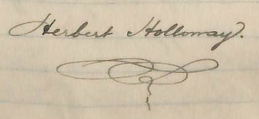 Herbert Holloway.